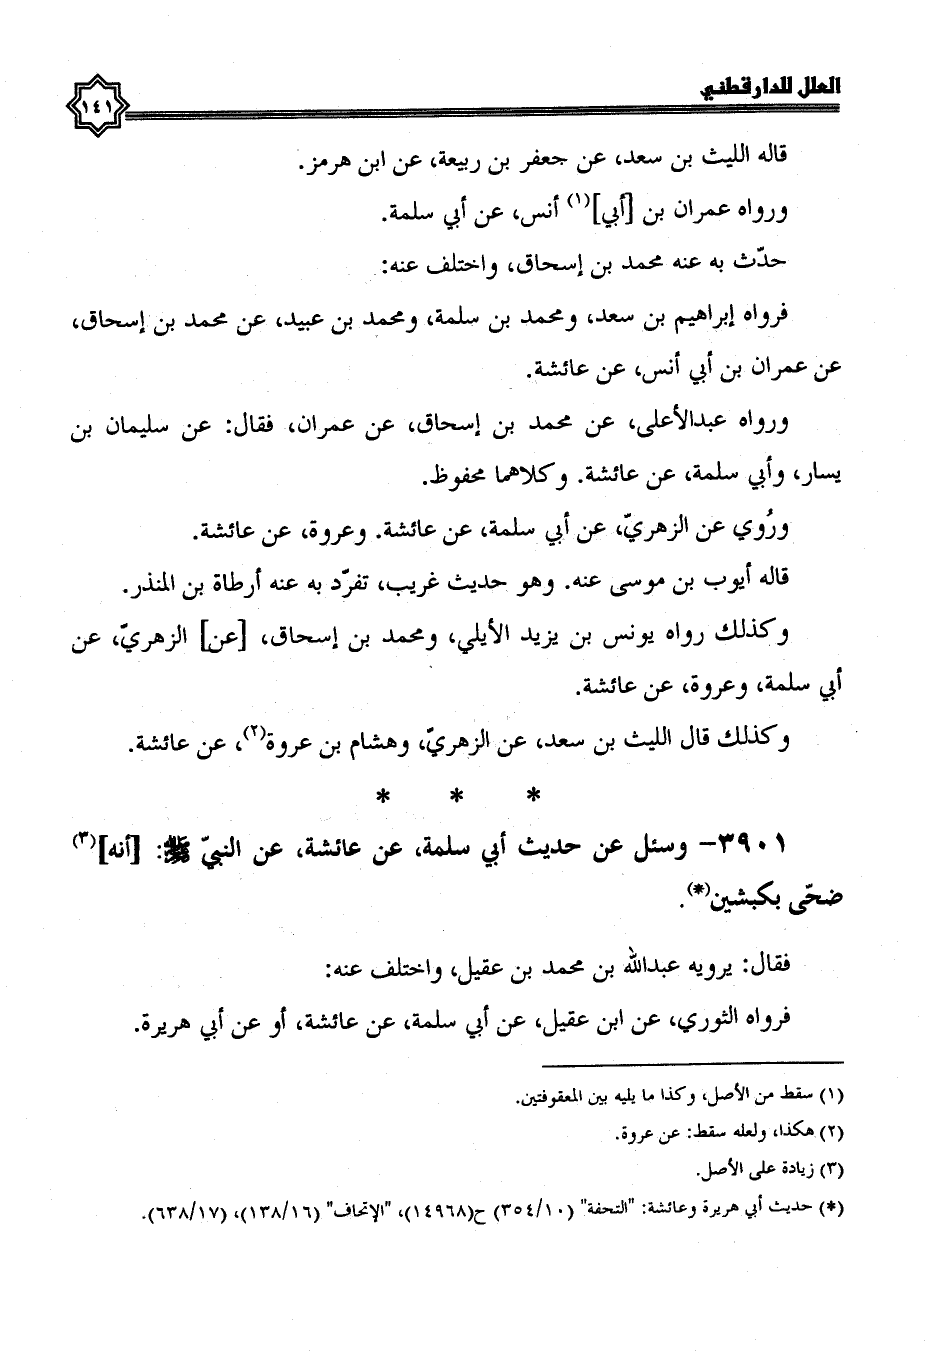 العلل للدارقطني
١٤١
قاله الليث بن سعد، عن جعفر بن ربيعة، عن ابن هرمز.
ورواه عمران بن [أبي](١) أنس، عن أبي سلمة.
حدّث به عنه محمد بن إسحاق، واختلف عنه:
فرواه إبراهيم بن سعد، ومحمد بن سلمة، ومحمد بن عبيد، عن محمد بن إسحاق،
عن عمران بن أبي أنس، عن عائشة.
ورواه عبدالأعلى، عن محمد بن إسحاق، عن عمران، فقال: عن سليمان بن
يسار، وأبي سلمة، عن عائشة. وكلاهما محفوظ.
ورُوي عن الزهريّ، عن أبي سلمة، عن عائشة. وعروة، عن عائشة.
قاله أيوب بن موسى عنه. وهو حديث غريب، تفرّد به عنه أرطاة بن المنذر.
وكذلك رواه يونس بن يزيد الأيلي، ومحمد بن إسحاق، [عن] الزهريّ، عن
أبي سلمة، وعروة، عن عائشة.
وكذلك قال الليث بن سعد، عن الزهريّ، وهشام بن عروة(٢)، عن عائشة.
* * *
٣٩٠١- وسئل عن حديث أبي سلمة، عن عائشة، عن النبيّ ﷺ: [أنه](٣)
ضحّى بكبشين(*).
فقال: يرويه عبدالله بن محمد بن عقيل، واختلف عنه:
فرواه الثوري، عن ابن عقيل، عن أبي سلمة، عن عائشة، أو عن أبي هريرة.
(١) سقط من الأصل، وكذا ما يليه بين المعقوفتين.
(٢) هكذا، ولعله سقط: عن عروة.
(٣) زيادة على الأصل.
(*) حديث أبي هريرة وعائشة: "التحفة" (٣٥٤/١٠) ح(١٤٩٦٨)، "الإتحاف" (١٣٨/١٦)، (٦٣٨/١٧).